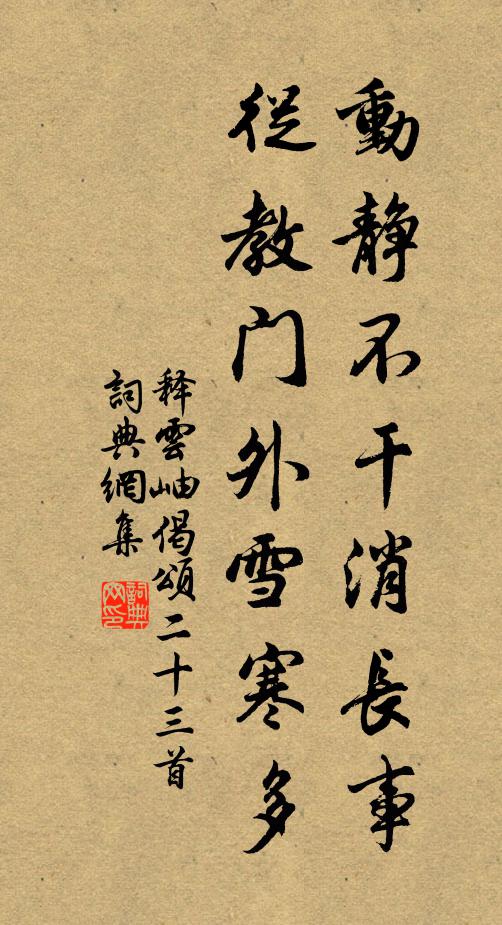 動静不干消長事
從教门外雪寒多
释雲岫偈頌二十三首
詞典網集
詞典网印